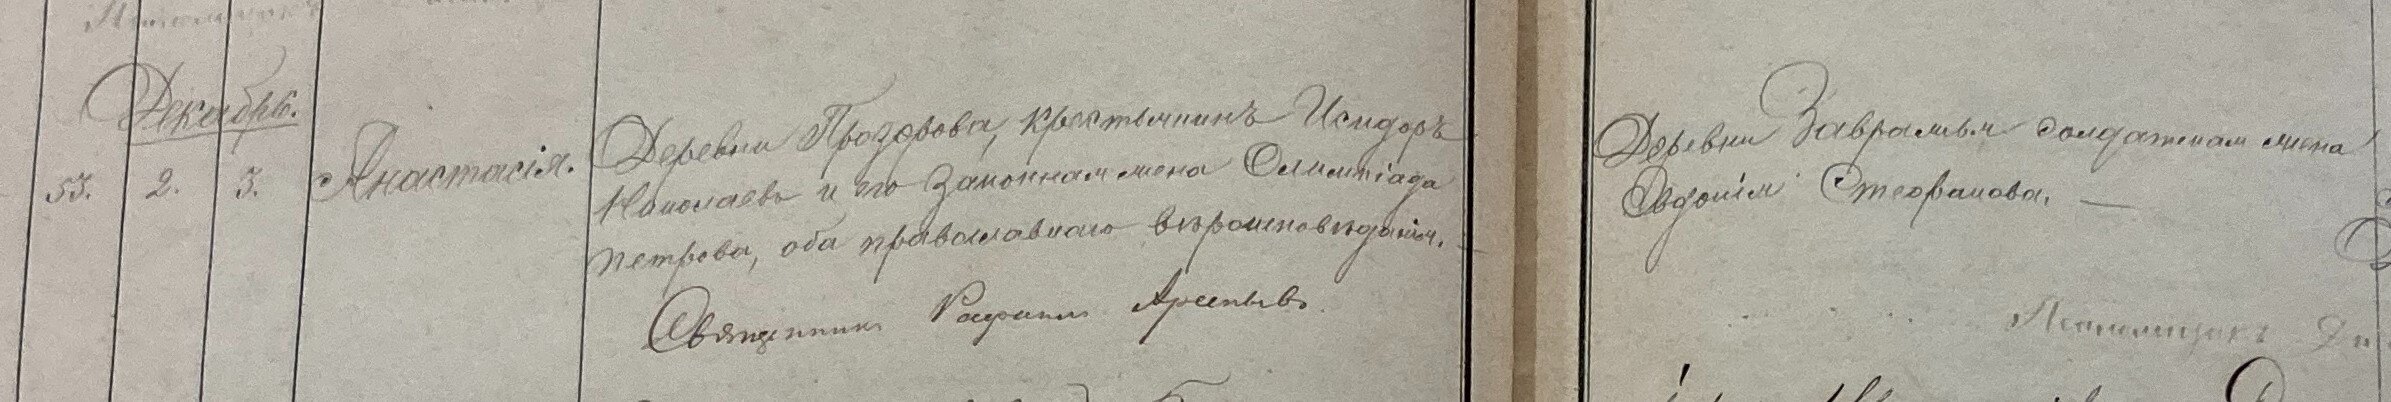 Декабрь.
53. 2. 3. Анастасія.
Деревни Прозорова, крестьянинъ Исидоръ
Николаевъ и его законная жена Олимпіада
Петрова, оба православнаго вѣроисповѣданія.
Священникъ Рафаилъ Арсеньевъ.
Деревни Завражья солдатская жена
Евдокія Стефанова. —